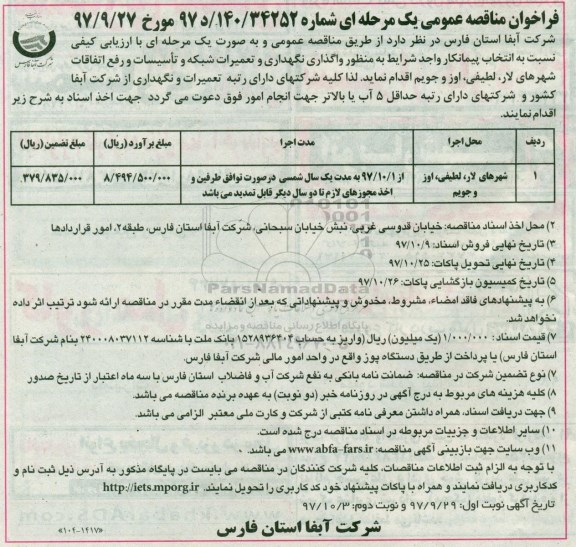 فراخوان مناقصه عمومی یک مرحله ای شماره ۱۴۰/۳۴۲۵۲/د ۹۷ مورخ ۹۷/۹/۲۷
شرکت آبفا استان فارس در نظر دارد از طریق مناقصه عمومی و به صورت یک مرحله ای با ارزیابی کیفی
نسبت به انتخاب پیمانکار واجد شرایط به منظور واگذاری نگهداری و تعمیرات شبکه و تأسیسات و رفع اتفاقات
شهرهای لار، لطیفی، اوز و جویم اقدام نماید. لذا کلیه شرکتهای دارای رتبه تعمیرات و نگهداری از شرکت آبفا
کشور و شرکتهای دارای رتبه حداقل ۵ آب یا بالاتر جهت انجام امور فوق دعوت می گردد جهت اخذ اسناد به شرح زیر
اقدام نمایند.
ردیف محل اجرا مدت اجرا مبلغ برآورد (ریال) مبلغ تضمین (ریال)
۱ شهرهای لار، لطیفی، اوز از ۹۷/۱۰/۱ به مدت یک سال شمسی درصورت توافق طرفین و ۸/۴۹۴/۵۰۰/۰۰۰ ۳۷۹/۸۳۵/۰۰۰
و جویم اخذ مجوزهای لازم تا دو سال دیگر قابل تمدید می باشد
۲) محل اخذ اسناد مناقصه: خیابان قدوسی غربی، نبش خیابان سبحانی، شرکت آبفا استان فارس، طبقه۲، امور قراردادها
۳) تاریخ نهایی فروش اسناد: ۹۷/۱۰/۹
۴) تاریخ نهایی تحویل پاکات: ۹۷/۱۰/۲۵
۵) تاریخ کمیسیون بازگشایی پاکات: ۹۷/۱۰/۲۶
ParsNamadData
پایگاه اطلاع رسانی مناقصه و مزایده
۶) به پیشنهادهای فاقد امضاء، مشروط، مخدوش و پیشنهاداتی که بعد از انقضاء مدت مقرر در مناقصه ارائه شود ترتیب اثر داده
نخواهد شد.
۷) قیمت اسناد: ۱/۰۰۰/۰۰۰ (یک میلیون) ریال (واریز به حساب ۱۵۲۸۹۳۶۴۰۴ بانک ملت با شناسه ۲۴۰۰۰۸۰۳۷۱۱۲ بنام شرکت آبفا
استان فارس) یا پرداخت از طریق دستگاه پوز واقع در واحد امور مالی شرکت آبفا فارس.
۷) نوع تضمین شرکت در مناقصه: ضمانت نامه بانکی به نفع شرکت آب و فاضلاب استان فارس با سه ماه اعتبار از تاریخ صدور
۸) کلیه هزینه های مربوط به درج آگهی در روزنامه خبر (دو نوبت) به عهده برنده مناقصه می باشد.
۹) جهت دریافت اسناد، همراه داشتن معرفی نامه کتبی از شرکت و کارت ملی معتبر الزامی می باشد.
۱۰) سایر اطلاعات و جزییات مربوطه در اسناد مناقصه درج شده است.
۱۱) وب سایت جهت بازبینی آگهی مناقصه: www.abfa-fars.ir می باشد.
با توجه به الزام ثبت اطلاعات مناقصات، کلیه شرکت کنندگان در مناقصه می بایست در پایگاه مذکور به آدرس ذیل ثبت نام و
کدکاربری دریافت نمایند و همراه با پاکات پیشنهاد خود کد کاربری را تحویل نمایند. http://iets.mporg.ir
تاریخ آگهی نوبت اول: ۹۷/۹/۲۹ و نوبت دوم: ۹۷/۱۰/۳
شرکت آبفا استان فارس
«۱۰۴-۱۴۱۷»